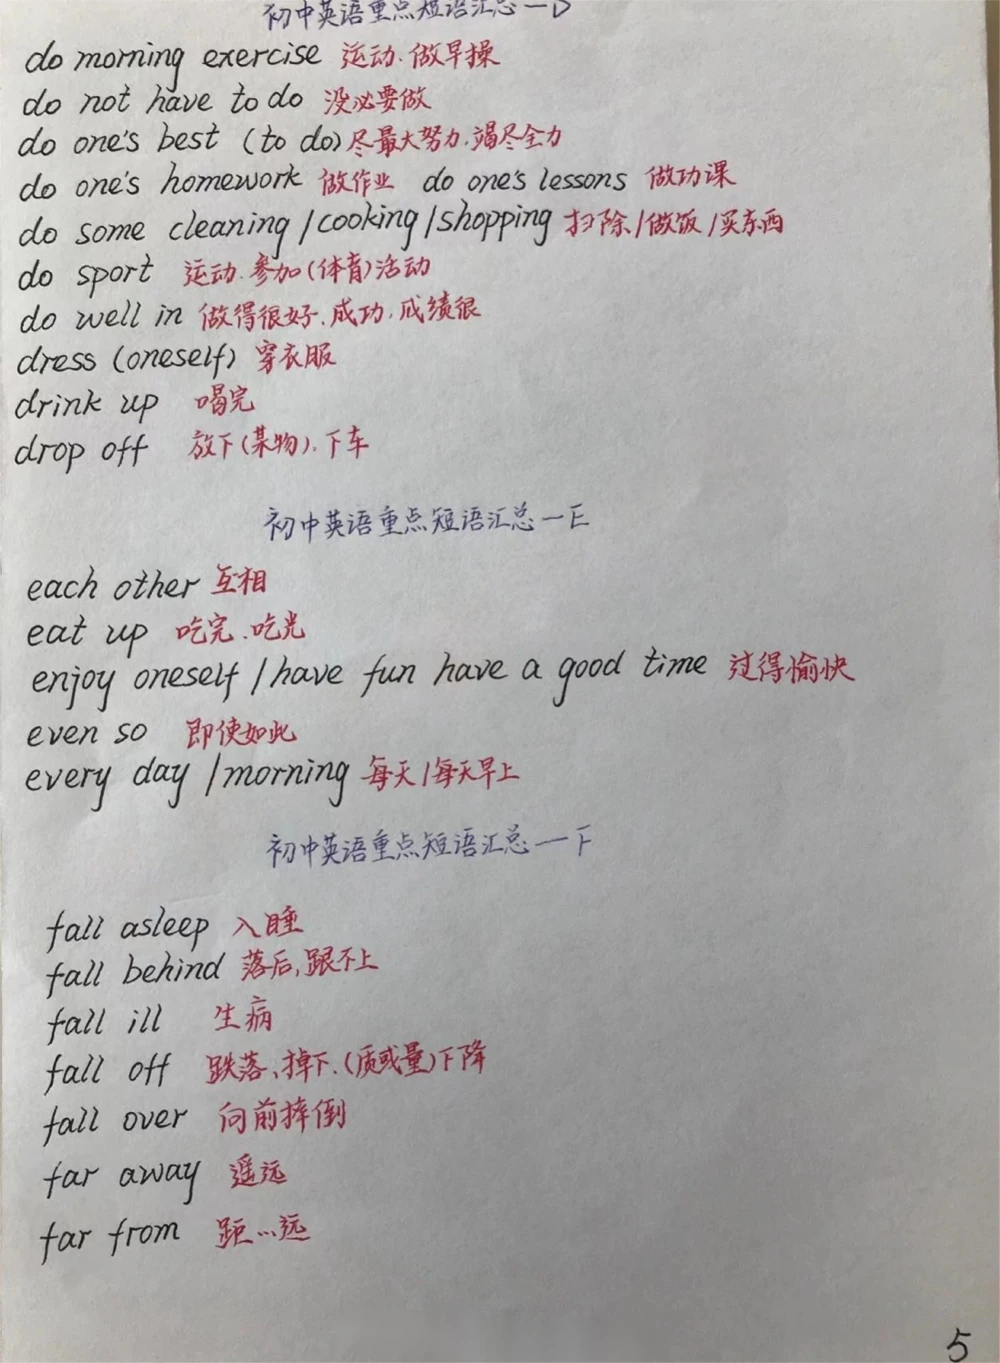 初中英语重点短语汇总一D
do morning exercise 运动、做早操
do not have to do 没必要做
do one's best (to do) 尽最大努力、竭尽全力
do one's homework 做作业 do one's lessons 做功课
do some cleaning /cooking /shopping 扫除/做饭/买东西
do sport 运动、参加(体育)活动
do well in 做得很好、成功、成绩很
dress (oneself) 穿衣服
drink up 喝完
drop off 放下(某物)、下车
初中英语重点短语汇总一E
each other 互相
eat up 吃完、吃光
enjoy oneself /have fun have a good time 过得愉快
even so 即使如此
every day /morning 每天/每天早上
初中英语重点短语汇总一F
fall asleep 入睡
fall behind 落后,跟不上
fall ill 生病
fall off 跌落、掉下、(质或量)下降
fall over 向前摔倒
far away 遥远
far from 距…远
5